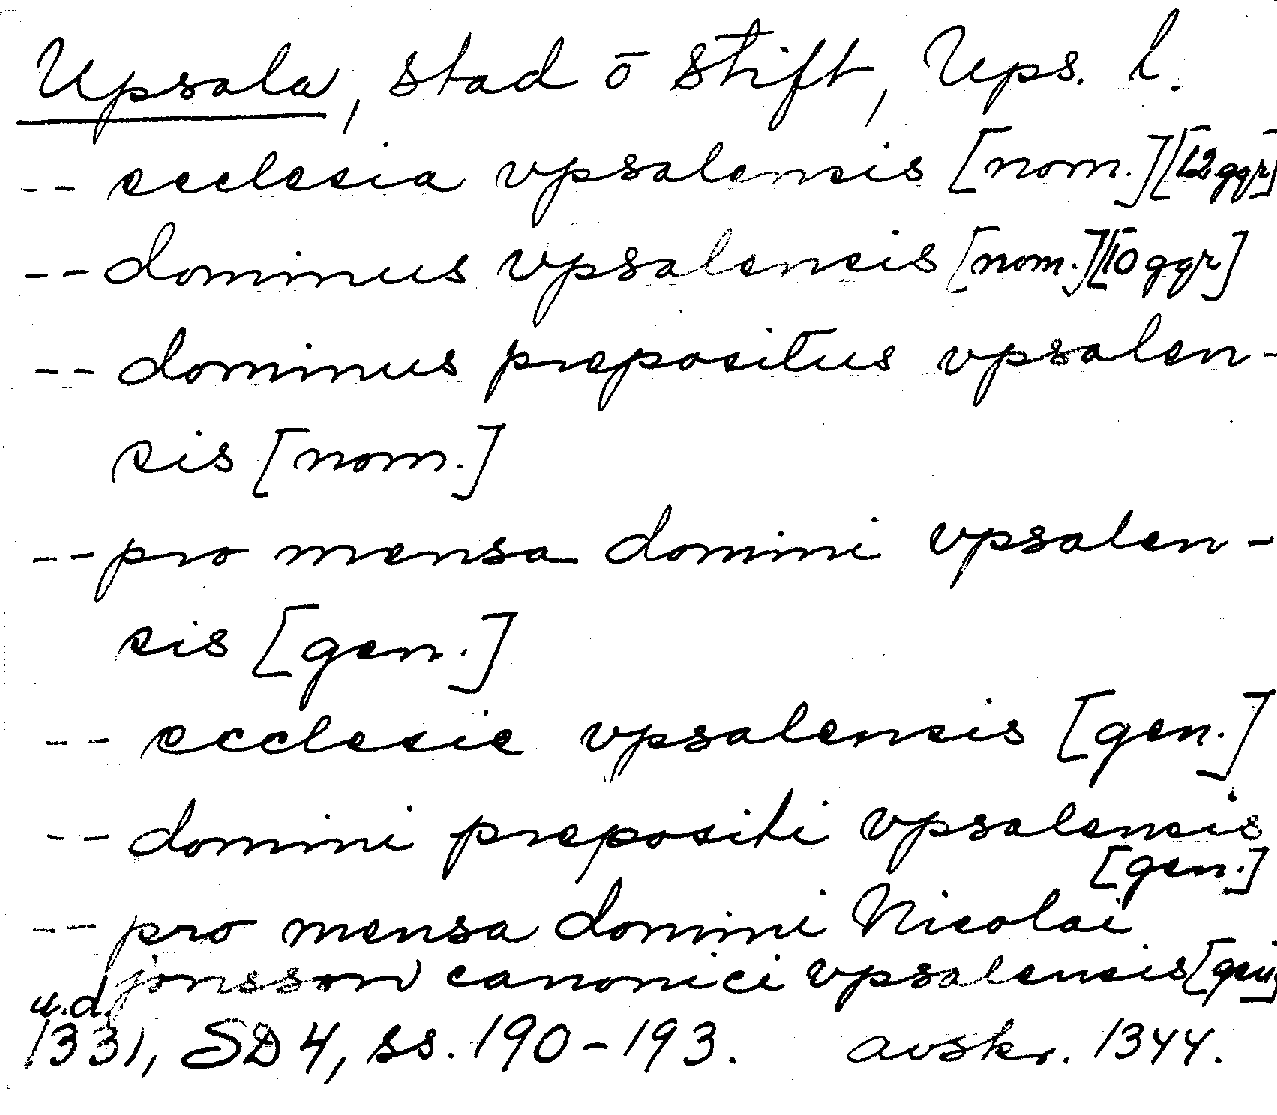 Upsala, stad ō stift, Ups. l.
-- ecclesia vpsalensis [nom.] [12 ggr]
-- dominus vpsalensis [nom.] [10 ggr]
-- dominus prepositus vpsalen-
sis [nom.]
-- pro mensa domini vpsalen-
sis [gen.]
-- ecclesie vpsalensis [gen.]
-- domini prepositi vpsalensis
[gen.]
-- pro mensa domini Nicolai
jonsson canonici vpsalensis [gen]
u.d.
1331, SD 4, ss. 190-193. avskr. 1344.